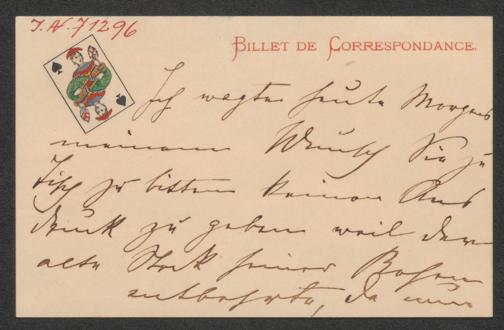 J.N. 71296
BILLET DE CORRESPONDANCE.
Ich wagte heute Morgens
meinem Wunsch Sie zu
Tisch zu bitten keinen Aus
druck zu geben weil der
alte Stock seiner
entbehrte, da nun